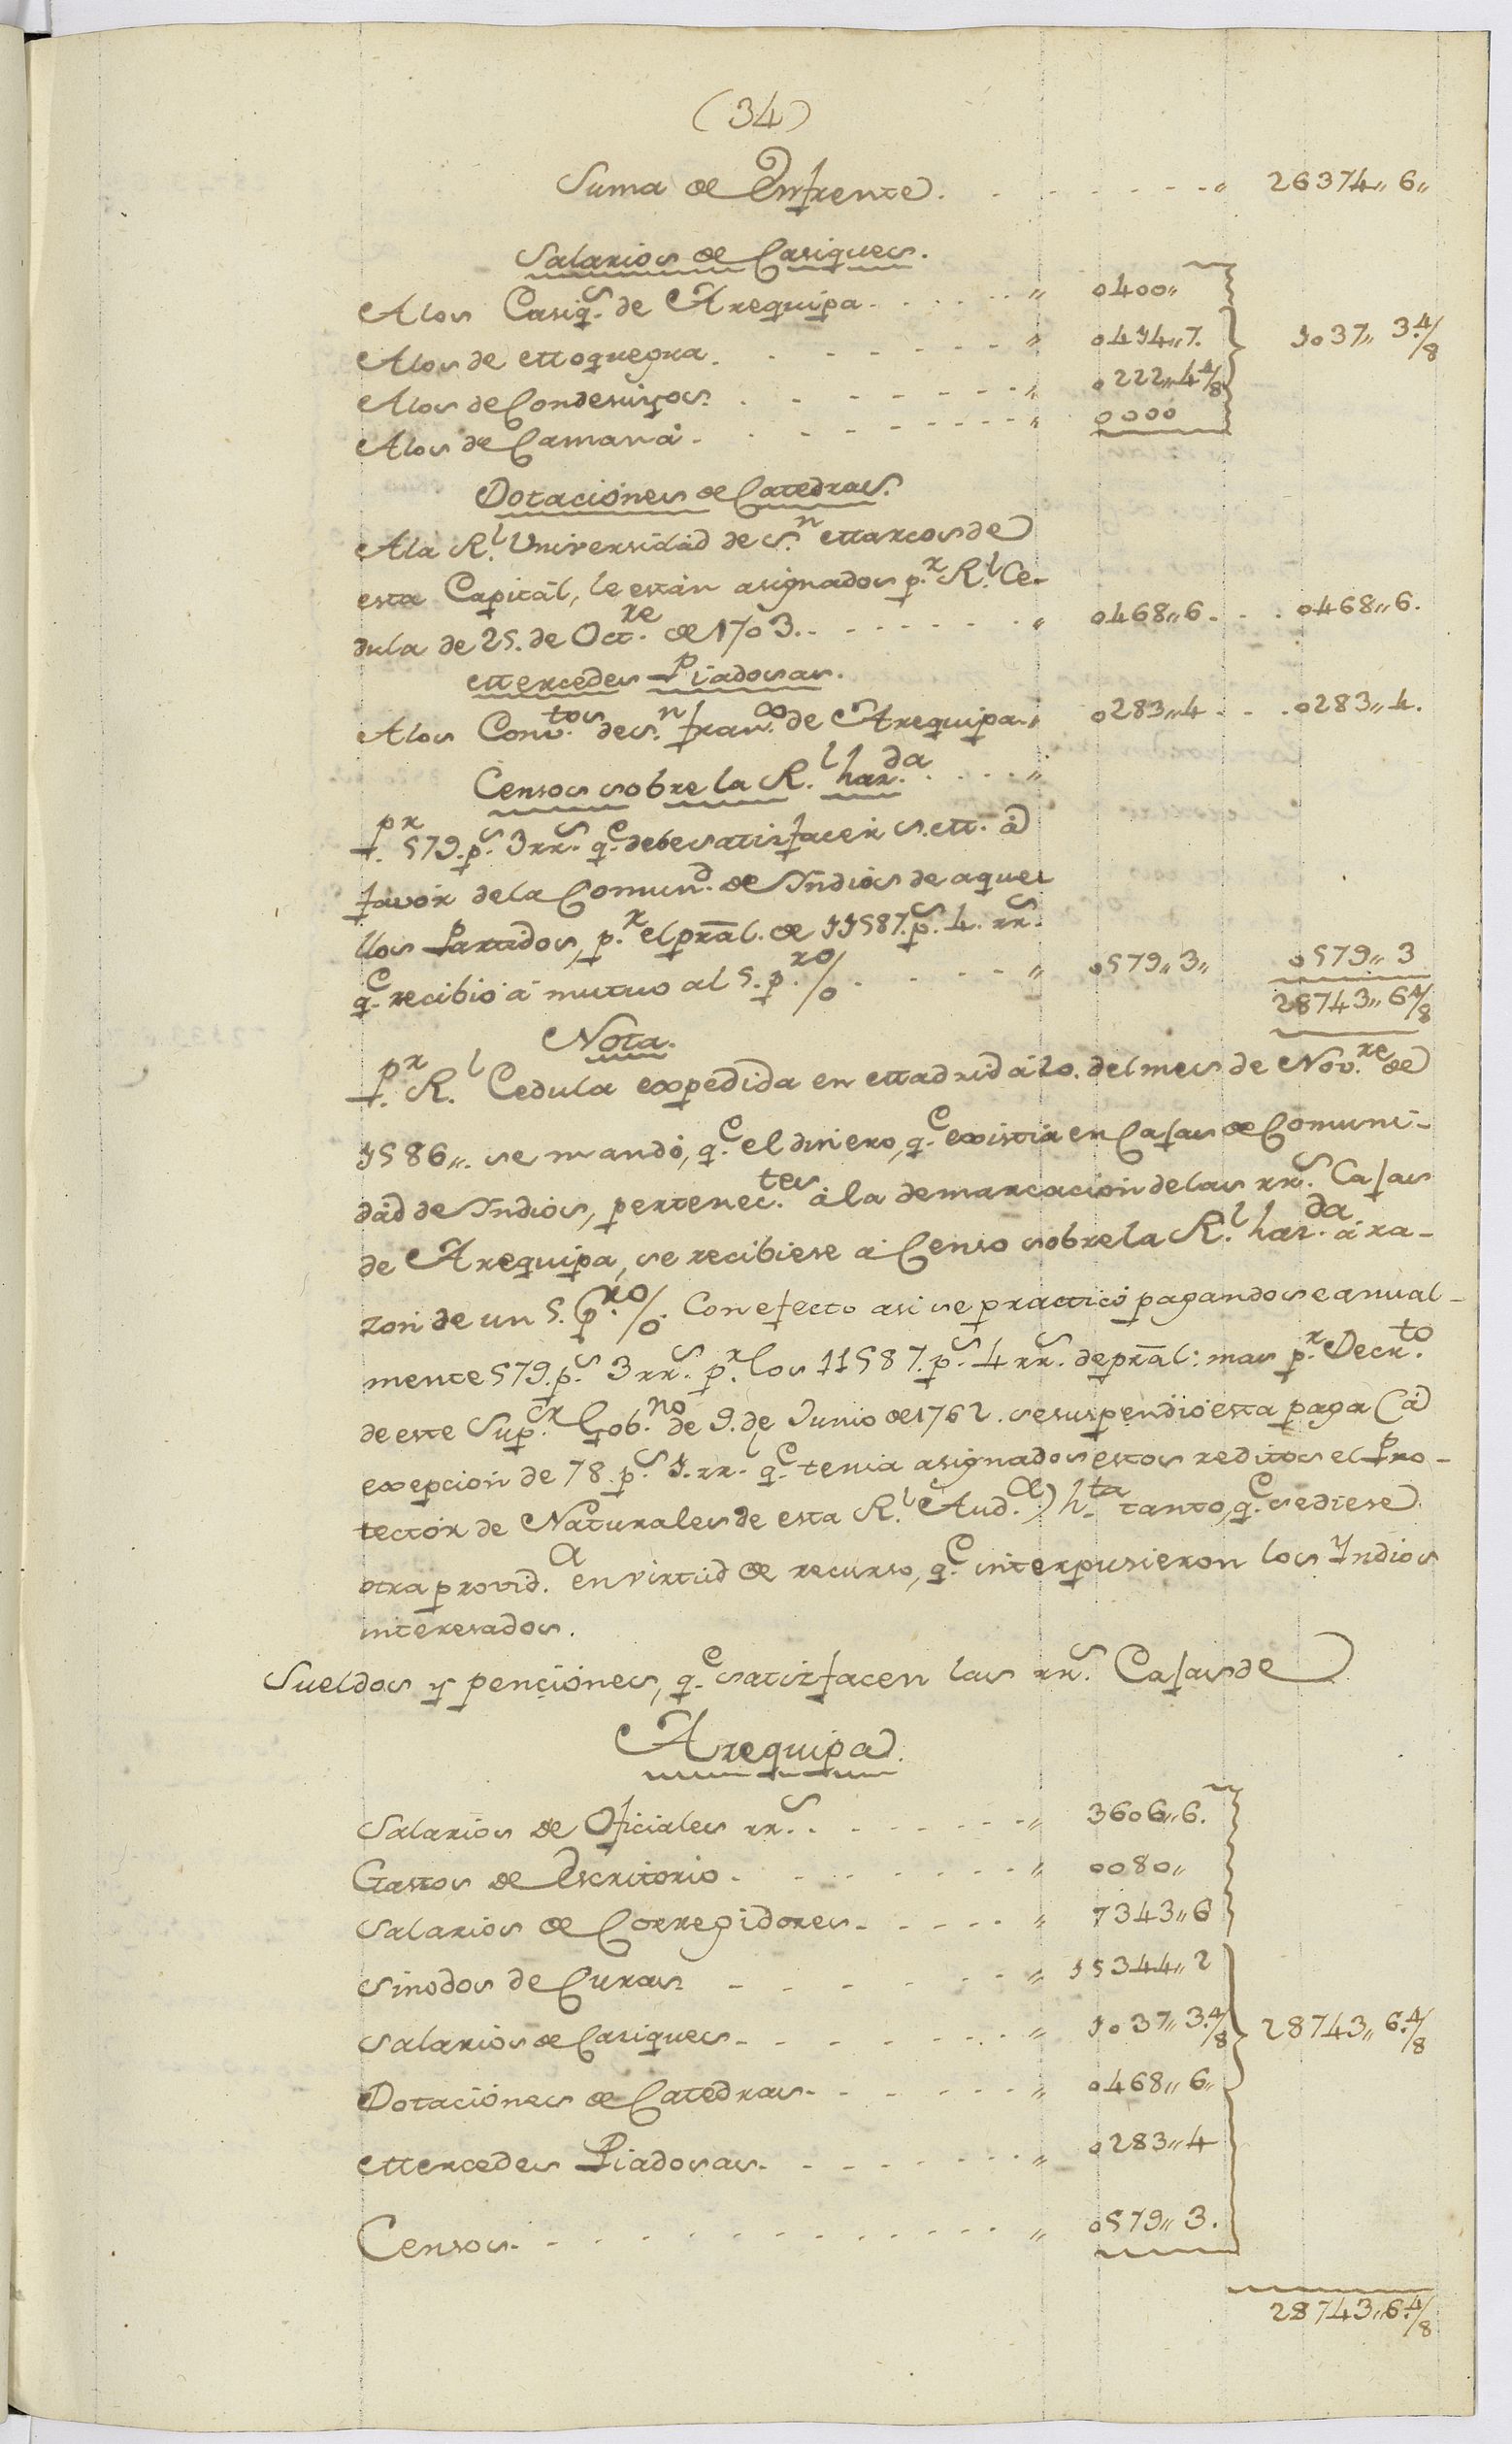 (34)
Suma de Enfrente. . . . . . . . " 26374,, 6,,
Salarios de Casiques.
A los Casiqs. de Arequipa. . . . . . " 0400,,
A los de Moquegua. . . . . . . . " 0414,, 7. 1037,, 3.4/8
A los de Condesuyos. . . . . . . . " 0222,, 4 4/8
A los de Camaná. . . . . . . . " 0000
Dotaciones de Catedras.
A la Rl. Universidad de Sn. Marcos de
esta Capitál, le están asignados pr. Rl. Ce-
dula de 25. de Octre. de 1703. . . . . . . " 0468,, 6. . . . 0468,, 6.
Mercedes Piadosas.
A los Convtos. de Sn. Franco. de Arequipa. " 0283,, 4 . . . 0283,, 4.
Censos sobre la Rl. Hazda. . . . . "
Pr. 579. ps. 3 rrs. qe. debe satisfacer S. M. á
favór de la Comund. de Indios de aque-
llos Partidos, pr. el prãl. de 11587. ps. 4. rrs.
qe. recibió á mutuo al 5. pro%. . . . . " 0579,, 3,, 0579,, 3
28743,, 6 4/8
Nota.
Pr. Rl. Cedula expedida en Madrid á 20. del mes de Novre. de
1586,,. se mandó, qe. el dinero, qe. existía en Cajas de Comuni-
dád de Indios, pertenectes. á la demarcación de las rrs. Cajas
de Arequipa, se recibiese á Censo sobre la Rl. Hazda. á ra-
zon de un 5. pro%. Con efecto asi se practicó pagandose anual-
mente 579. ps. 3 rrs. pr. los 11587. ps. 4 rrs. de prãl: mas pr. Decrto.
de este Supr. Gobno. de 9. de Junio de 1762. se suspendió esta paga (á
exepcion de 78. ps. 1. rr. qe. tenia asignados estos reditos el Pro-
tectór de Naturales de esta Rl. Auda.) hta. tanto, qe. se diese
otra provida. en virtud de recurso, qe. interpusieron los Yndios
interesados.
Sueldos y penciónes, qe. satisfacen las rrs. Cajas de
Arequipa.
Salarios de Oficiales rrs. . . . . . . . " 3606,, 6.
Gastos de Escritorio. . . . . . . . " 0080,,
Salarios de Corregidores. . . . . . " 7343,, 6
Sinodos de Curas. . . . . . . " 15344,, 2
Salarios de Casiques. . . . . . . . " 1037,, 3.4/8 28743,, 6.4/8
Dotaciónes de Catedras. . . . . . . " 0468,, 6,,
Mercedes Piadosas. . . . . . . . " 0283,, 4
Censos. . . . . . . . . . . . . " 0579,, 3.
28743,, 6.4/8